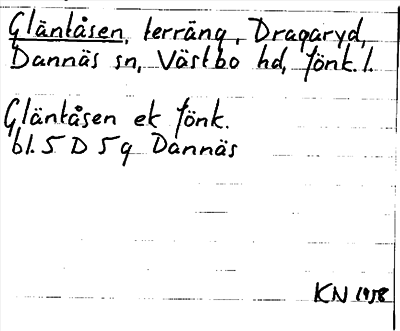 Gläntåsen, terräng, Dragaryd,
Dannäs sn, Västbo hd, Jönk. l.
Gläntåsen ek Jönk.
bl. 5 D 5 g Dannäs
KN 1958